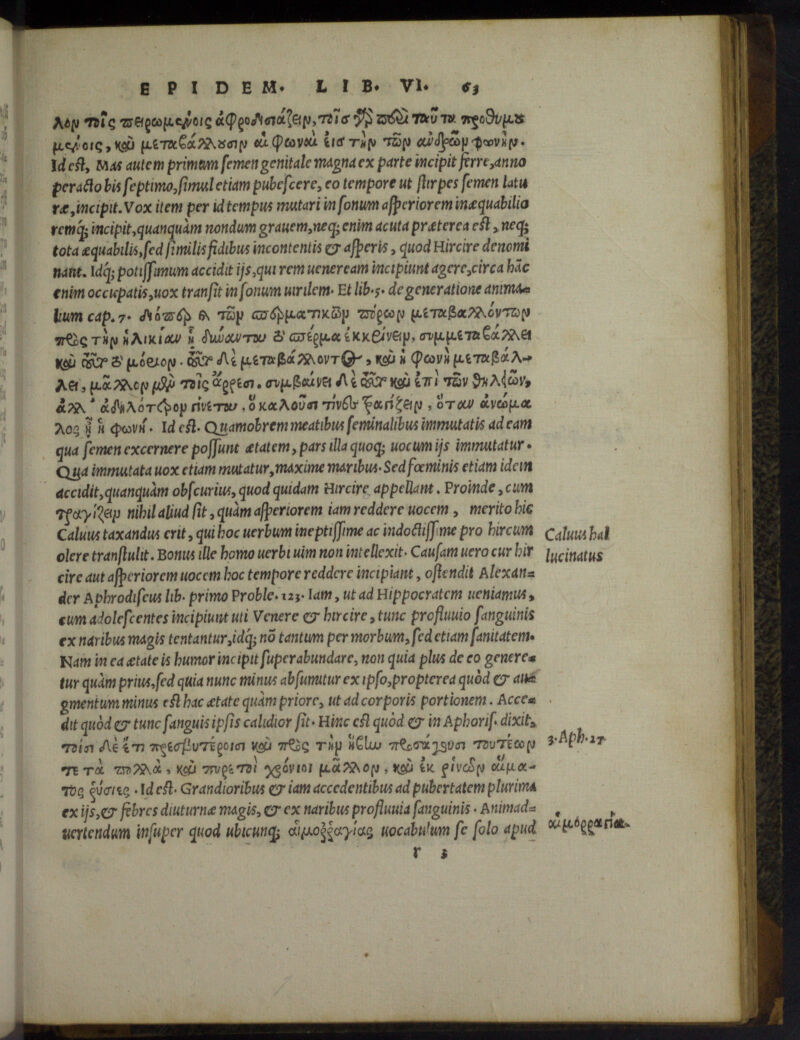 EPIDEM. LIB. VI.
Id est, Mas autem primum semen genitale magna ex parte incipit ferre, anno
peracto bis septimo, simul etiam pubescere, eo tempore ut stirpes semen latu
ræ, incipit. Vox item per id tempus mutari in sonum asperiorem inæquabilio
remq; incipit, quanquàm nondum grauem, neq; enim acuta præterea est, neq;
tota æquabilis, sed similis fidibus incontentis & asperis, quod Hircire denomi
nant. Idq; potissimum accidit ijs, qui rem ueneream incipiunt agere, circa hãc
enim occupatis, uox transit in sonum uirilem. Et lib. 5. de generatione anima=
lium cap. 7. δἰὸ τῶν σπερματικῶν πόρων μεταβαλλόντων
πρὸς τὴν ἡλικίαν ἢ δύνανται τὸ σπέρμα ἐκκρίνειν, συμμεταβάλλει
καὶ τὸ μόριον. τούτου δὲ μεταβάλλοντος, καὶ ἡ φωνὴ μεταβάλ-
λει, μᾶλλον μὲν τοῖς ἄρρεσι. συμβαίνει δὲ τοῦτο καὶ ἐπὶ τῶν θηλειῶν,
ἀλλ' ἀδηλότερον γίνεται, ὃ καλοῦσί τινες τραγίζειν, ὅταν ἀνώμα
λος ᾖ ἡ φωνή. Id est. Quamobrem meatibus seminalibus immutatis ad eam
qua semen excernere possunt ætatem, pars illa quoq; uocum ijs immutatur.
Qua immutata uox etiam mutatur, maxime maribus. Sed fœminis etiam idem
accidit, quanquàm obscurius, quod quidam Hircire appellant. Proinde, cum
τραγίζειν nihil aliud sit, quàm asperiorem iam reddere uocem, merito hic
Caluus taxandus erit, qui hoc uerbum ineptissime ac indoctissime pro hircum
Caluus hal
olere transtulit. Bonus ille homo uerbi uim non intellexit. Causam uero cur hir
lucinatus
cire aut asperiorem uocem hoc tempore reddere incipiant, ostendit Alexan=
der Aphrodiseus lib. primo Proble. 123. Iam, ut ad Hippocratem ueniamus,
cum adolescentes incipiunt uti Venere & hircire, tunc profluuio sanguinis
ex naribus magis tentantur, idq; nõ tantum per morbum, sed etiam sanitatem.
Nam in ea ætate is humor incipit superabundare, non quia plus de eo genere=
tur quàm prius, sed quia nunc minus absumitur ex ipso, propterea quòd & au=
gmentum minus est hac ætate quàm priore, ut ad corporis portionem. Acce=
dit quòd & tunc sanguis ipsis calidior sit. Hinc est quòd & in Aphoris. dixit,
τοῖσι δὲ ἔτι πρεσβυτέροισι καὶ πρὸς τὴν ἥβην προσάγουσι τουτέων
3. Aph. 27
τε τὰ πολλὰ, καὶ πυρετοὶ χρόνιοι μᾶλλον, καὶ ἐκ ῥινῶν αἵμα-
τος ῥύσιες. Id est. Grandioribus & iam accedentibus ad pubertatem plurima
ex ijs, & febres diuturnæ magis, & ex naribus profluuia sanguinis. Animad=
uertendum insuper quod ubicunq; αἱμορραγίας uocabulum se solo apud
r